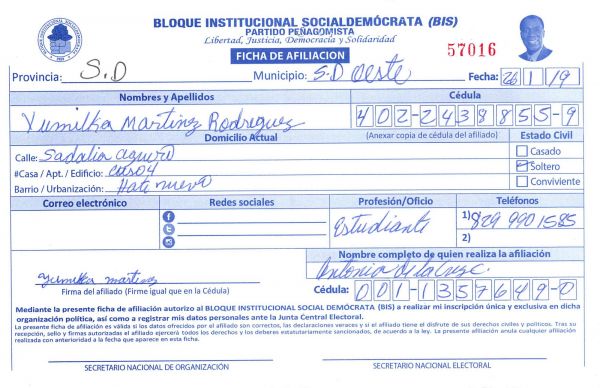 BLOQUE INSTITUCIONAL SOCIALDEMÓCRATA (BIS)
PARTIDO PEÑAGOMISTA
Libertad, Justicia, Democracia y Solidaridad
FICHA DE AFILIACION
57016
Provincia: S.D Municipio: S.D oeste Fecha: 26/1/19
Nombres y Apellidos Cédula
Yumilka Martinez Rodriguez 402-2438855-9
Domicilio Actual (Anexar copia de cédula del afiliado) Estado Civil
Calle: Sadalia Casado
#Casa / Apt. / Edificio: Soltero
Barrio / Urbanización: Hato nuevo Conviviente
Correo electrónico Redes sociales Profesión/Oficio Teléfonos
Estudiante 1) 829 990 1585
2)
Nombre completo de quien realiza la afiliación
yumilka martinez Antonia de la Cruz
Firma del afiliado (Firme igual que en la Cédula) Cédula: 001-1357649-0
Mediante la presente ficha de afiliación autorizo al BLOQUE INSTITUCIONAL SOCIAL DEMÓCRATA (BIS) a realizar mi inscripción única y exclusiva en dicha
organización política, así como a registrar mis datos personales ante la Junta Central Electoral.
La presente ficha de afiliación es válida si los datos ofrecidos por el afiliado son correctos, las declaraciones veraces y si el afiliado tiene el disfrute de sus derechos civiles y políticos. Tras su
recepción, sello y firmas autorizadas el afiliado ejercerá todos los derechos y los deberes estatutariamente sancionados, de acuerdo a la ley. La presente afiliación anula cualquier afiliación
realizada con anterioridad a la fecha que aparece en esta ficha.
SECRETARIO NACIONAL DE ORGANIZACIÓN SECRETARIO NACIONAL ELECTORAL